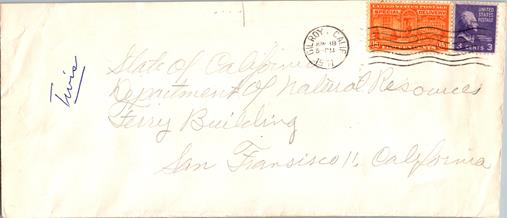 UNITED STATES POSTAGE
SPECIAL DELIVERY
15 15
UNITED STATES POSTAGE
3 CENTS 3
GILROY, CALIF.
5 PM
State of California
Department of Natural Resources
Ferry Building
San Fransisco 11, California